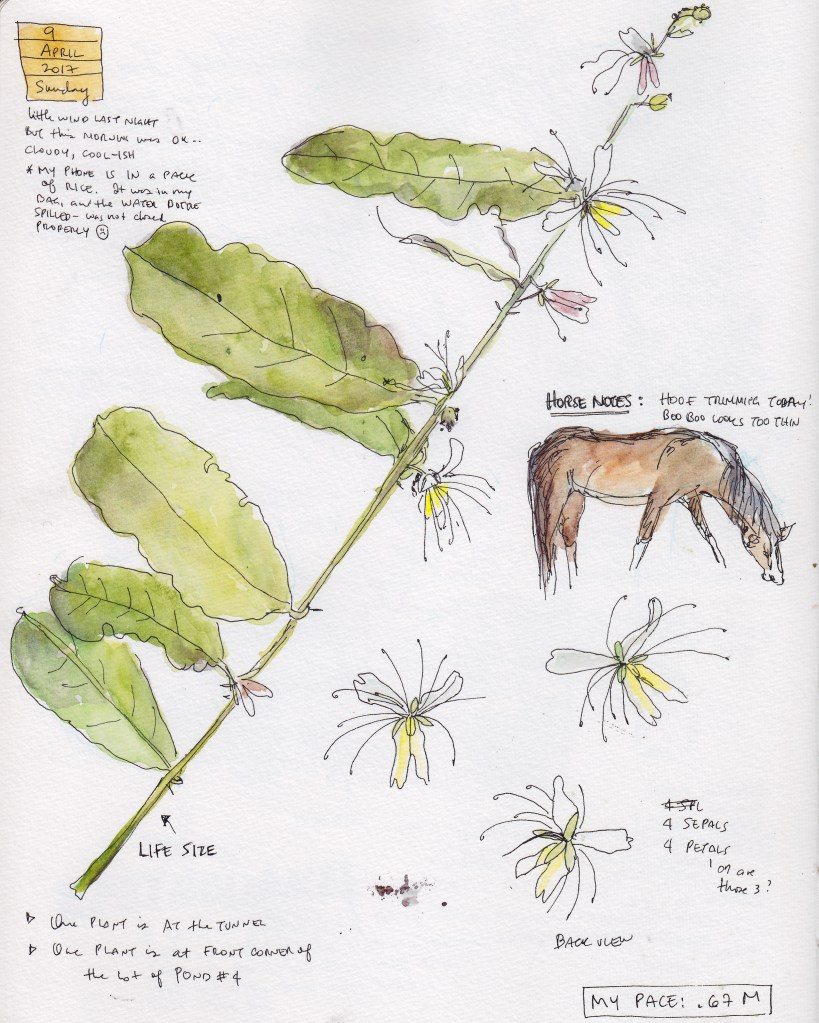 9
APRIL
2017
Sunday
little WIND LAST NIGHT
But this MORNING was OK..
CLOUDY, COOL-ISH
* MY PHONE IS IN A PACK
of RICE. It was in my
BAG, and the WATER BOTTLE
SPILLED - was not closed
PROPERLY
HORSE NOTES: HOOF TRIMMING TODAY!
BOO BOO LOOKS TOO THIN
LIFE SIZE
4 SEPALS
4 PETALS
or are
those 3?
BACK VIEW
One PLANT is AT the TUNNEL
One PLANT is at FRONT CORNER of
the lot of POND #4
MY PACE: .67 M